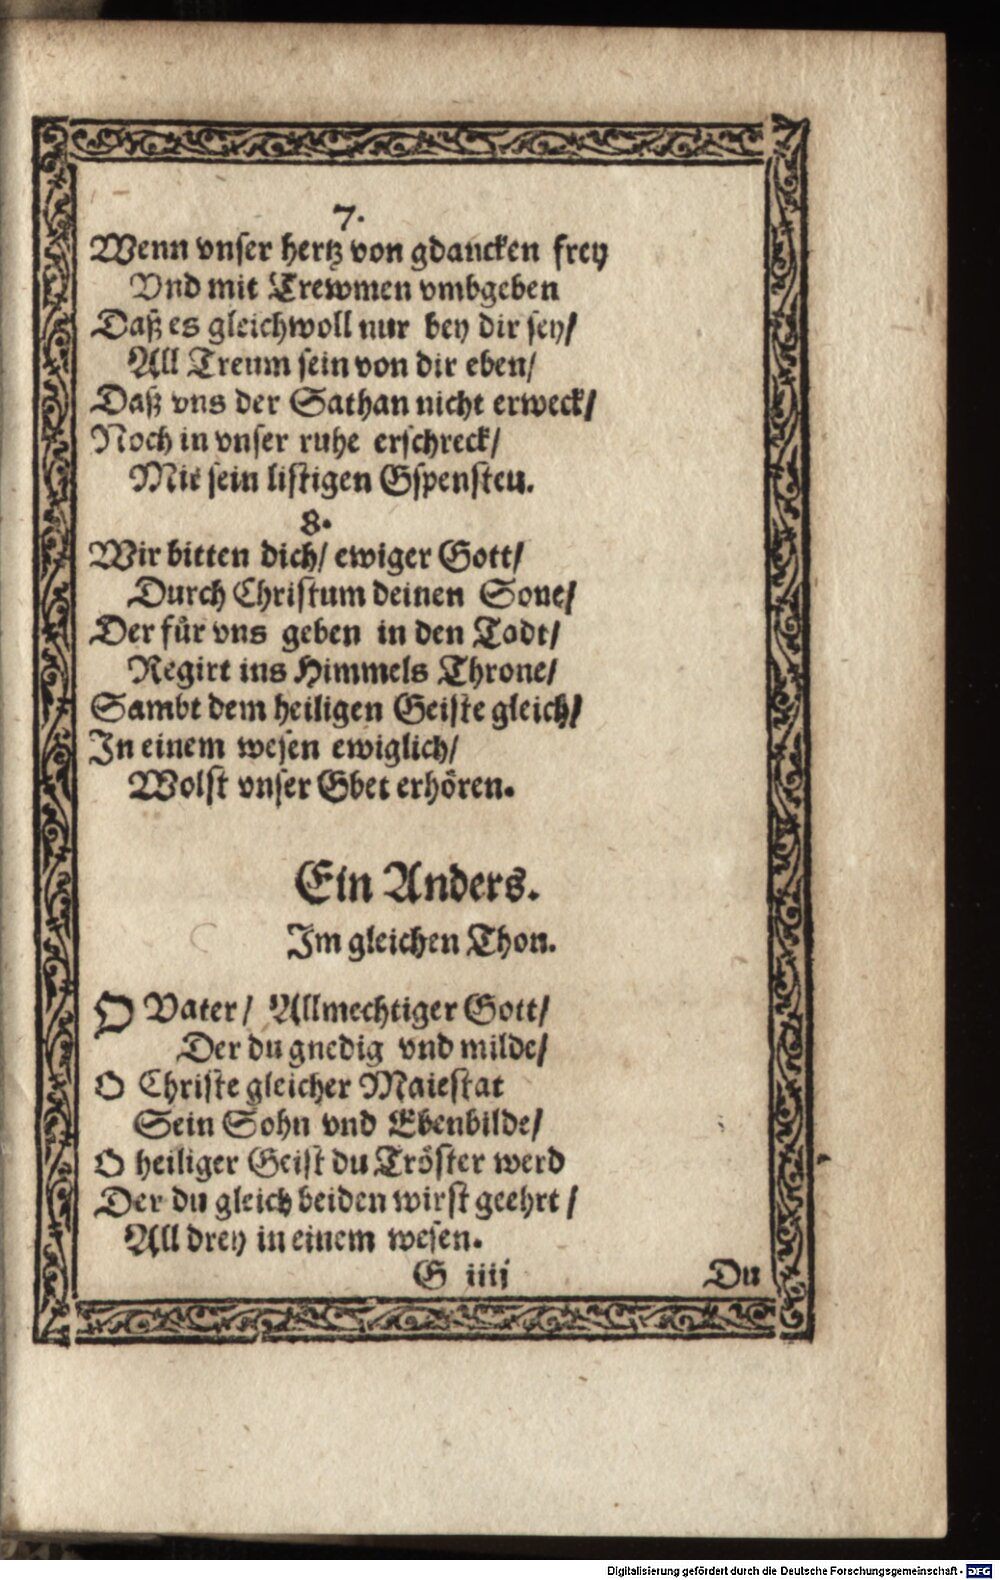 7.
Wenn vnser hertz von gdancken frey
Vnd mit Trewmen vmbgeben
Daß es gleichwoll nur bey dir sey/
All Treum sein von dir eben/
Daß vns der Sathan nicht erweck/
Noch in vnser ruhe erschreck/
Mit sein listigen Gspensten.
8.
Wir bitten dich/ ewiger Gott/
Durch Christum deinen Sone/
Der für vns geben in den Todt/
Regirt ins Himmels Throne/
Sambt dem heiligen Geiste gleich/
In einem wesen ewiglich/
Wolst vnser Gbet erhören.
Ein Anders.
Im gleichen Thon.
O Vater/ Allmechtiger Gott/
Der du gnedig vnd milde/
O Christe gleicher Maiestat
Sein Sohn vnd Ebenbilde/
O heiliger Geist du Tröster werd
Der du gleich beiden wirst geehrt/
All drey in einem wesen.
G iiij Du
Digitalisierung gefördert durch die Deutsche Forschungsgemeinschaft - DFG